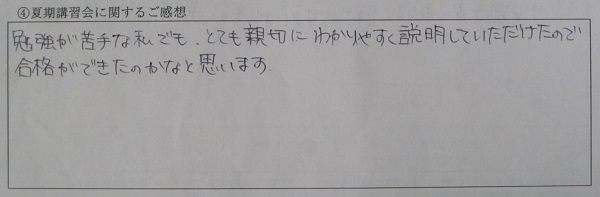 ④夏期講習会に関するご感想
勉強が苦手な私でも、とても親切にわかりやすく説明していただけたので
合格ができたのかなと思います